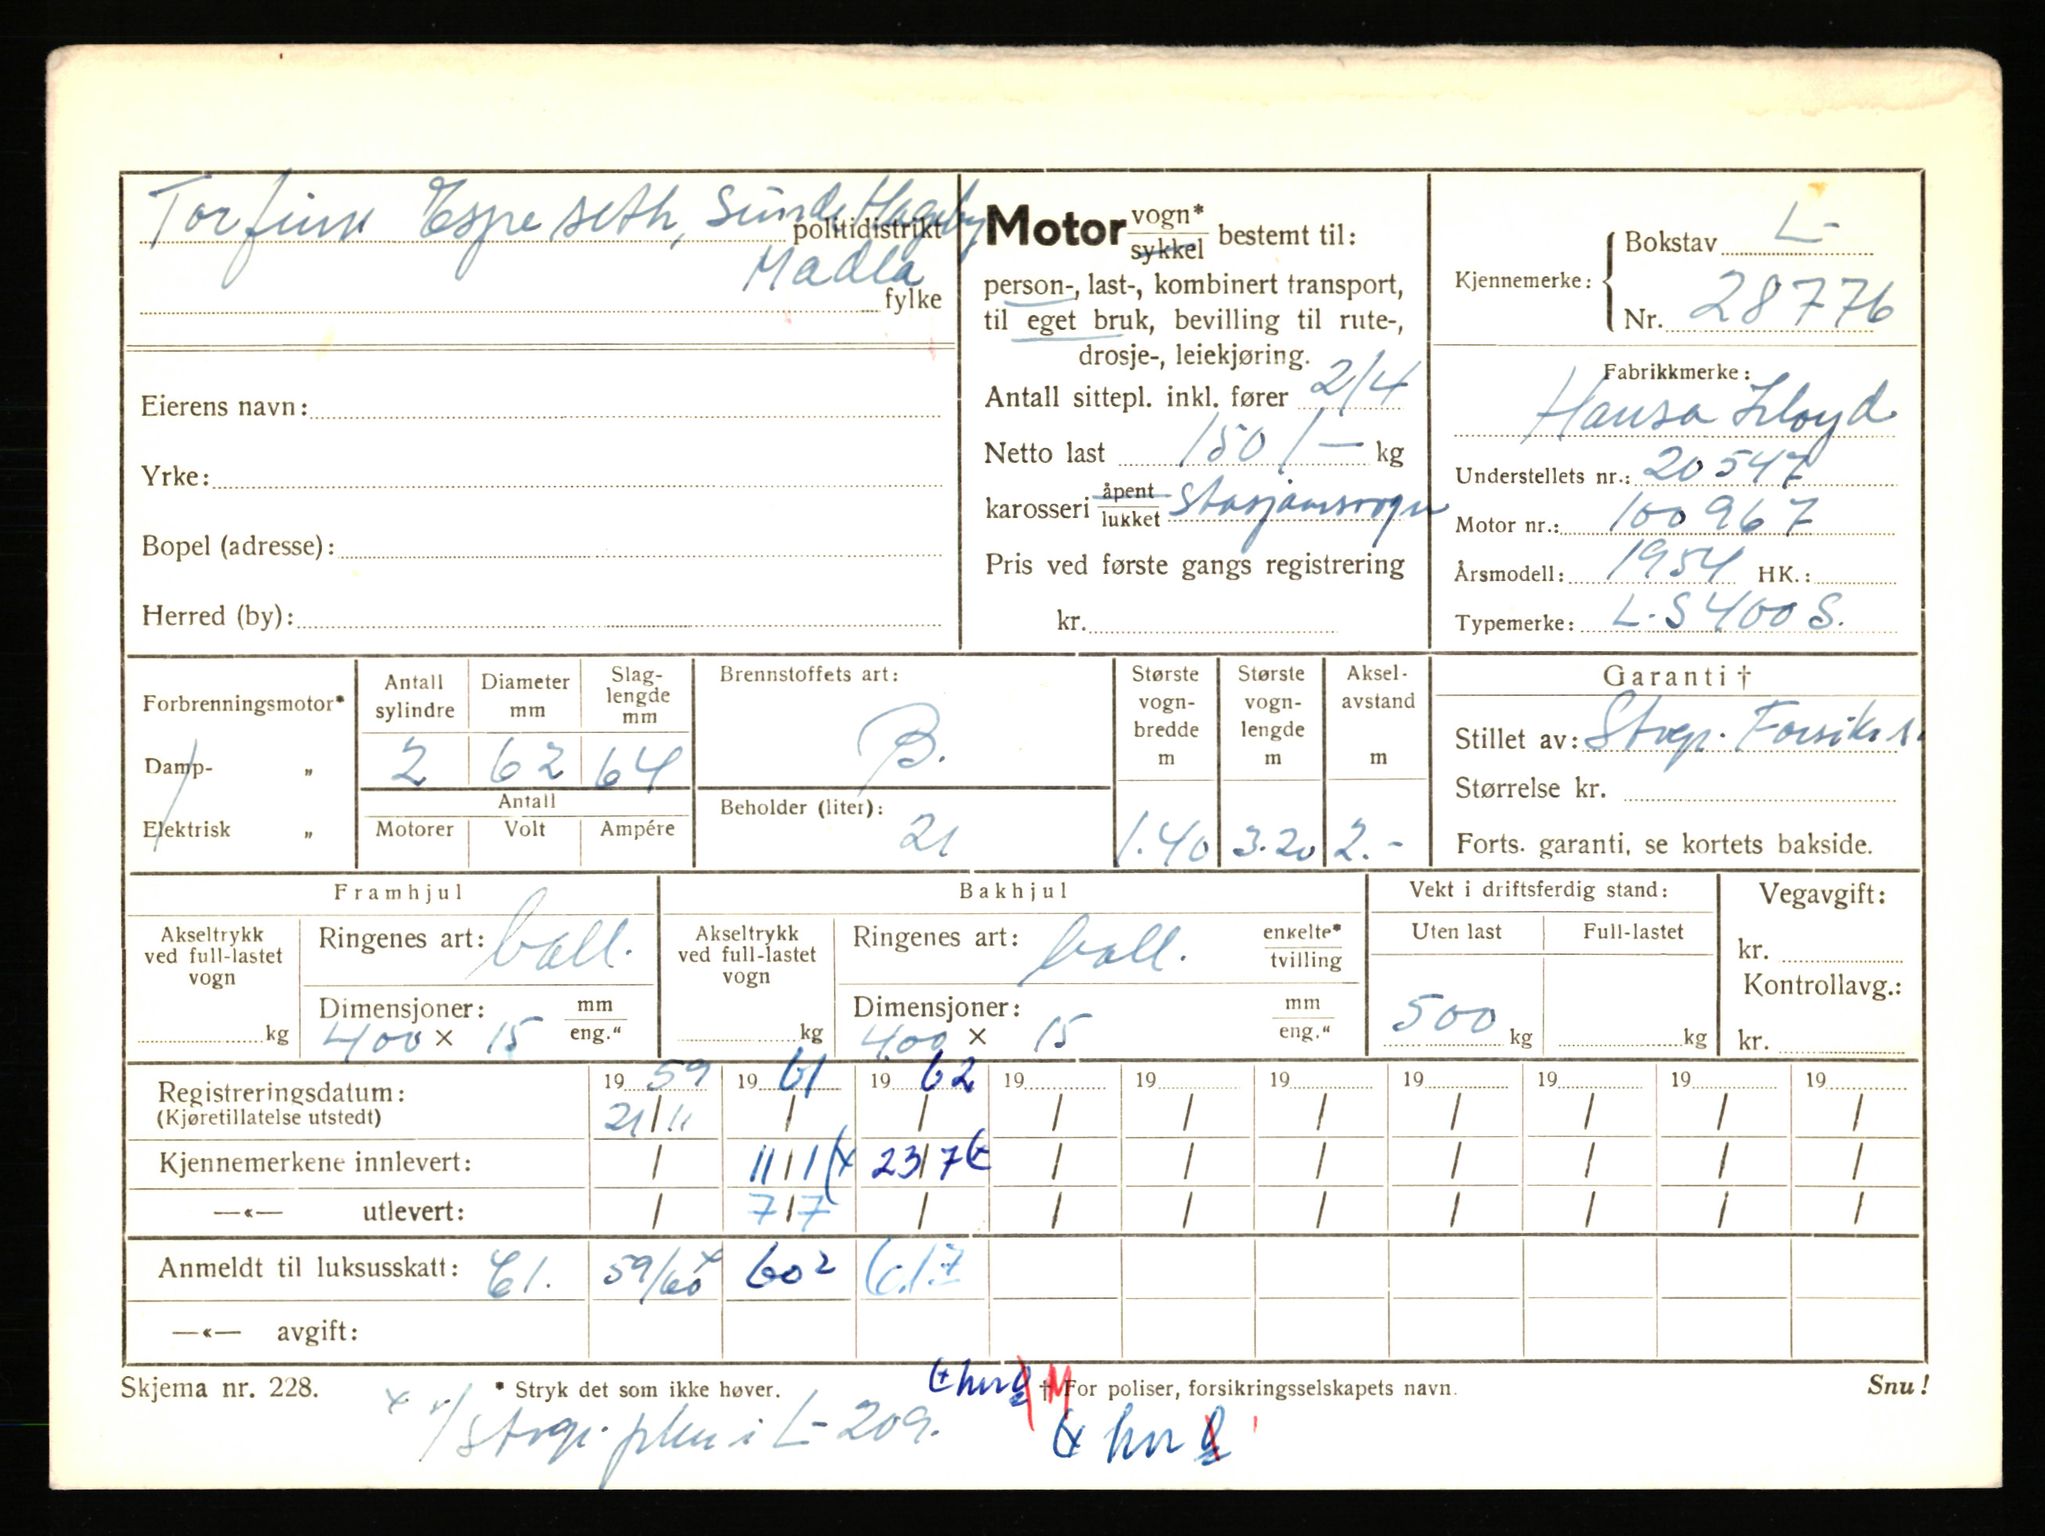 Torfinn Espeseth, Sunde Hageby
politidistrikt
Madla
fylke
Eierens navn:
Yrke:
Bopel (adresse):
Herred (by):
Motor vogn* sykkel bestemt til:
person-, last-, kombinert transport,
til eget bruk, bevilling til rute-,
drosje-, leiekjøring.
Antall sittepl. inkl. fører 2/4
Netto last 150/- kg
karosseri åpent lukket Stasjonsvogn
Pris ved første gangs registrering
kr.
Kjennemerke: Bokstav L-
Nr. 28776
Fabrikkmerke:
Hansa Lloyd
Understellets nr.: 20547
Motor nr.: 100967
Årsmodell: 1954 HK.:
Typemerke: L.S 400 S.
Forbrenningsmotor*
Damp- „
Elektrisk „
Antall sylindre 2
Diameter mm 62
Slag-lengde mm 64
Antall
Motorer Volt Ampére
Brennstoffets art: B.
Beholder (liter): 21
Største vogn-bredde m 1.40
Største vogn-lengde m 3.20
Aksel-avstand m 2.-
Garanti †
Stillet av: Stvgr. Forsikr.
Størrelse kr.
Forts. garanti, se kortets bakside.
Framhjul
Akseltrykk ved full-lastet vogn kg
Ringenes art: ball.
Dimensjoner: mm eng."
400 x 15
Bakhjul
Akseltrykk ved full-lastet vogn kg
Ringenes art: ball. enkelte* tvilling
Dimensjoner: mm eng."
400 x 15
Vekt i driftsferdig stand:
Uten last Full-lastet
500 kg kg
Vegavgift:
kr.
Kontrollavg.:
kr.
Registreringsdatum: 19 59 19 61 19 62 19 19 19 19 19 19 19
(Kjøretillatelse utstedt) 21/11 / / / / / / / / /
Kjennemerkene innlevert: / 11/1 (x 23/7 (x / / / / / / /
—«— utlevert: / 7/7 / / / / / / / /
Anmeldt til luksusskatt: 61. 59/60 x 60 2 61.7
—«— avgift:
Skjema nr. 228.
* Stryk det som ikke høver.
† For poliser, forsikringsselskapets navn.
Snu!
L-209.